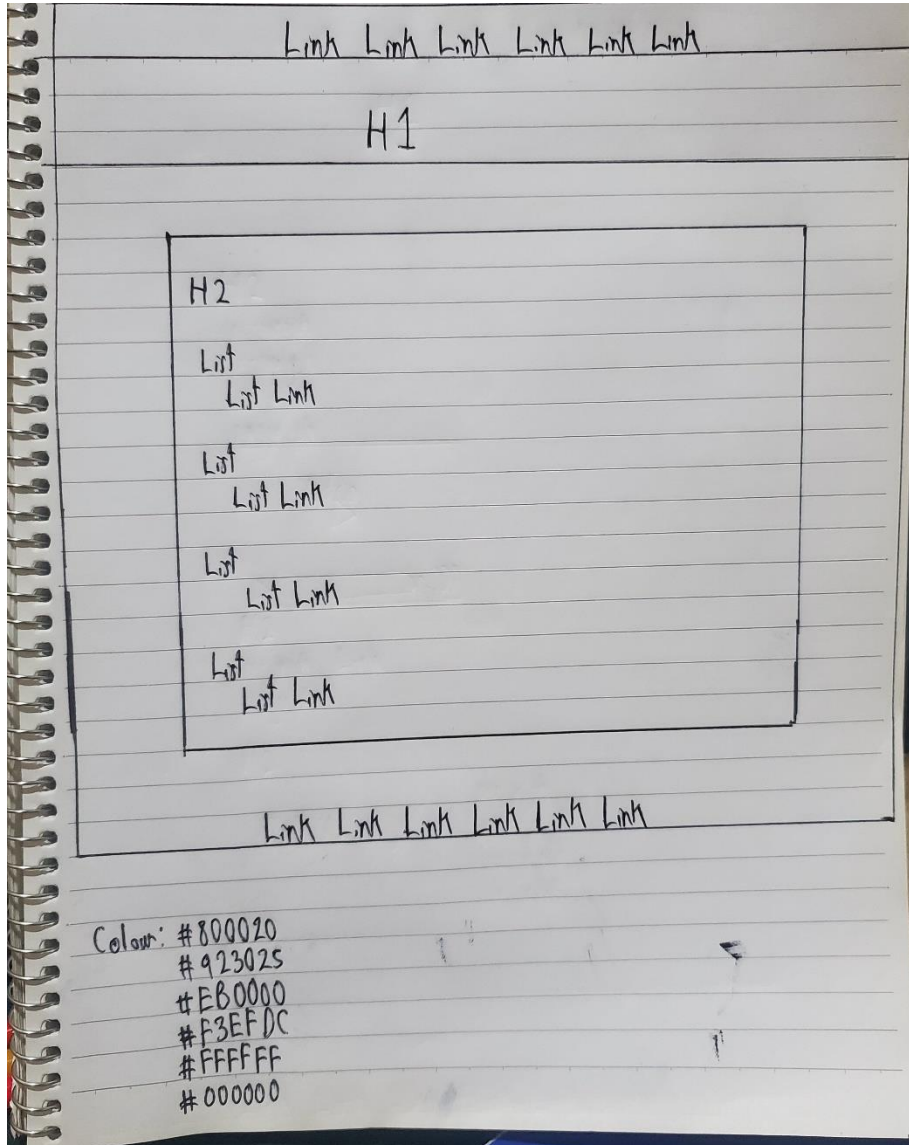 Link Link Link Link Link Link
H1
H2
List
List Link
List
List Link
List
List Link
List
List Link
Link Link Link Link Link Link
Colour: #800020
#923025
#EB0000
#F3EFDC
#FFFFFF
#000000